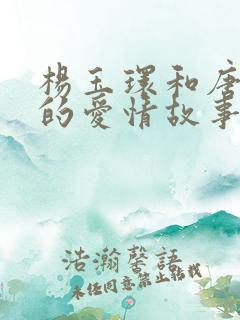 楊玉環和唐
的愛情故事
浩瀚馨語
未经同意禁止转载